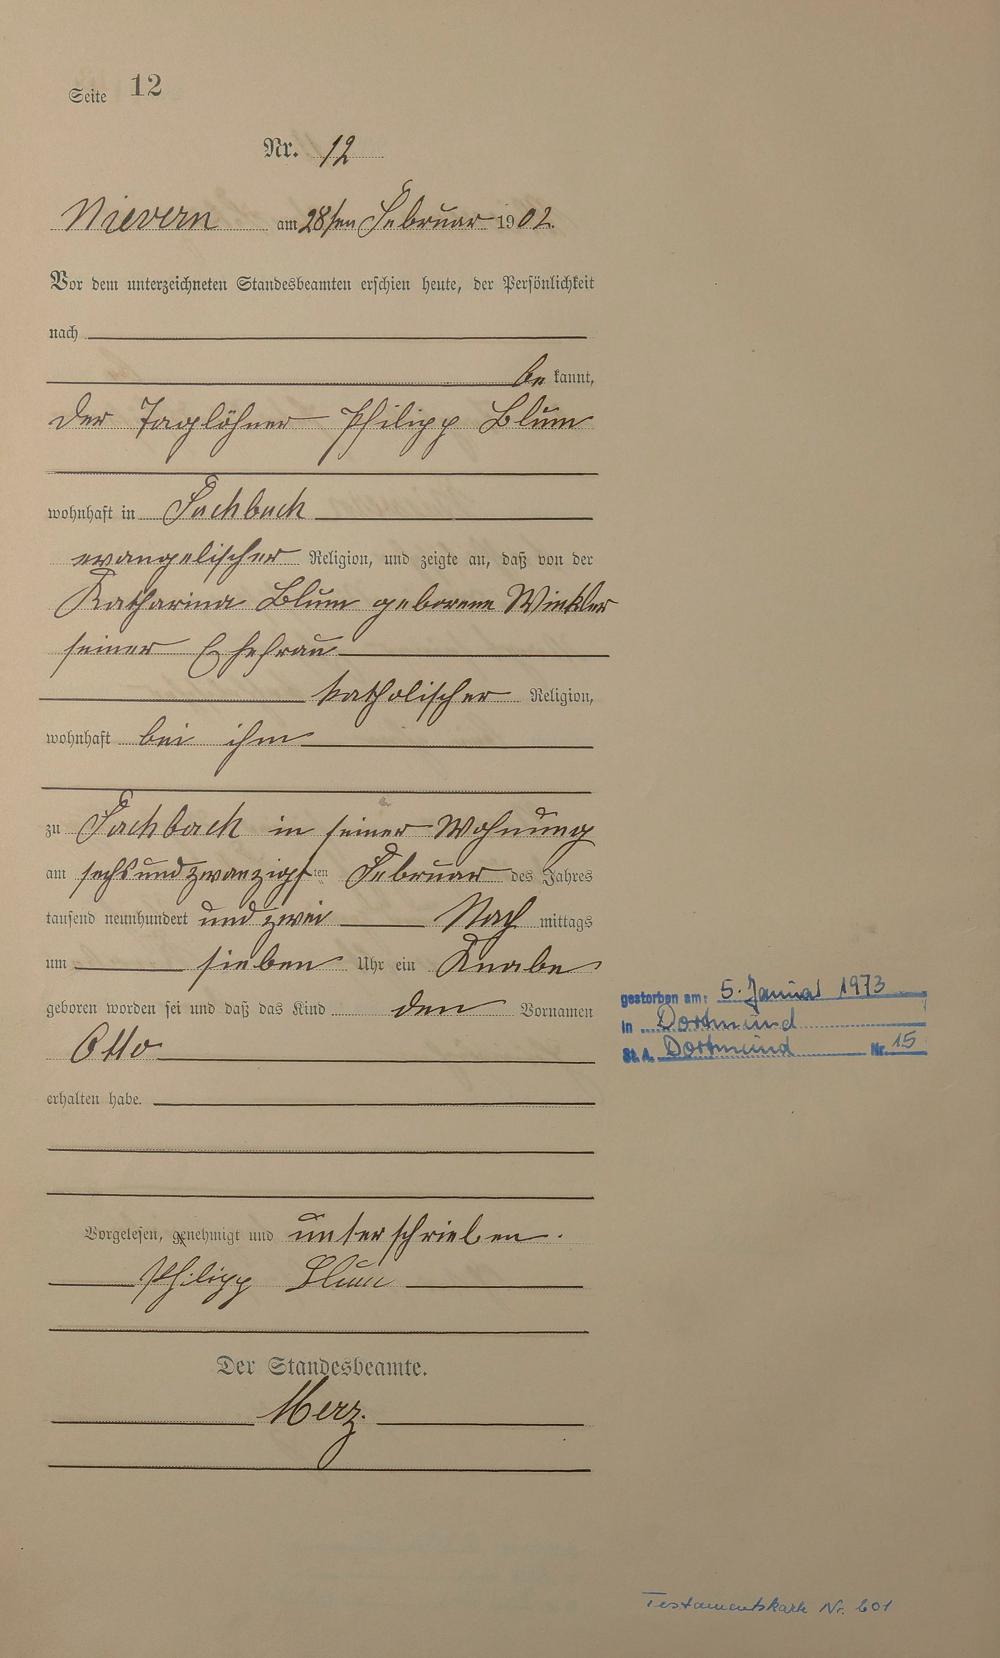 Seite 12
Nr. 12
Nievern am 28ten Februar 1902.
Vor dem unterzeichneten Standesbeamten erschien heute, der Persönlichkeit
nach
bekannt,
der Taglöhner Philipp Blum
wohnhaft in Fachbach
evangelischer Religion, und zeigte an, daß von der
Katharina Blum geborene Winkler
seiner Ehefrau
katholischer Religion,
wohnhaft bei ihm
zu Fachbach in seiner Wohnung
am sechsundzwanzigsten Februar des Jahres
tausend neunhundert und zwei Nachmittags
um sieben Uhr ein Knabe
geboren worden sei und daß das Kind den Vornamen
Otto
erhalten habe.
Vorgelesen, genehmigt und unterschrieben.
Philipp Blum
Der Standesbeamte.
Merz.
gestorben am: 5. Januar 1973
in Dortmund
St. A. Dortmund Nr. 15
Testamentskarte Nr. 601